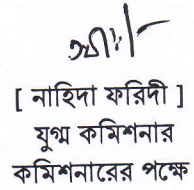 [ নাহিদা ফরিদী ]
যুগ্ম কমিশনার
কমিশনারের পক্ষে